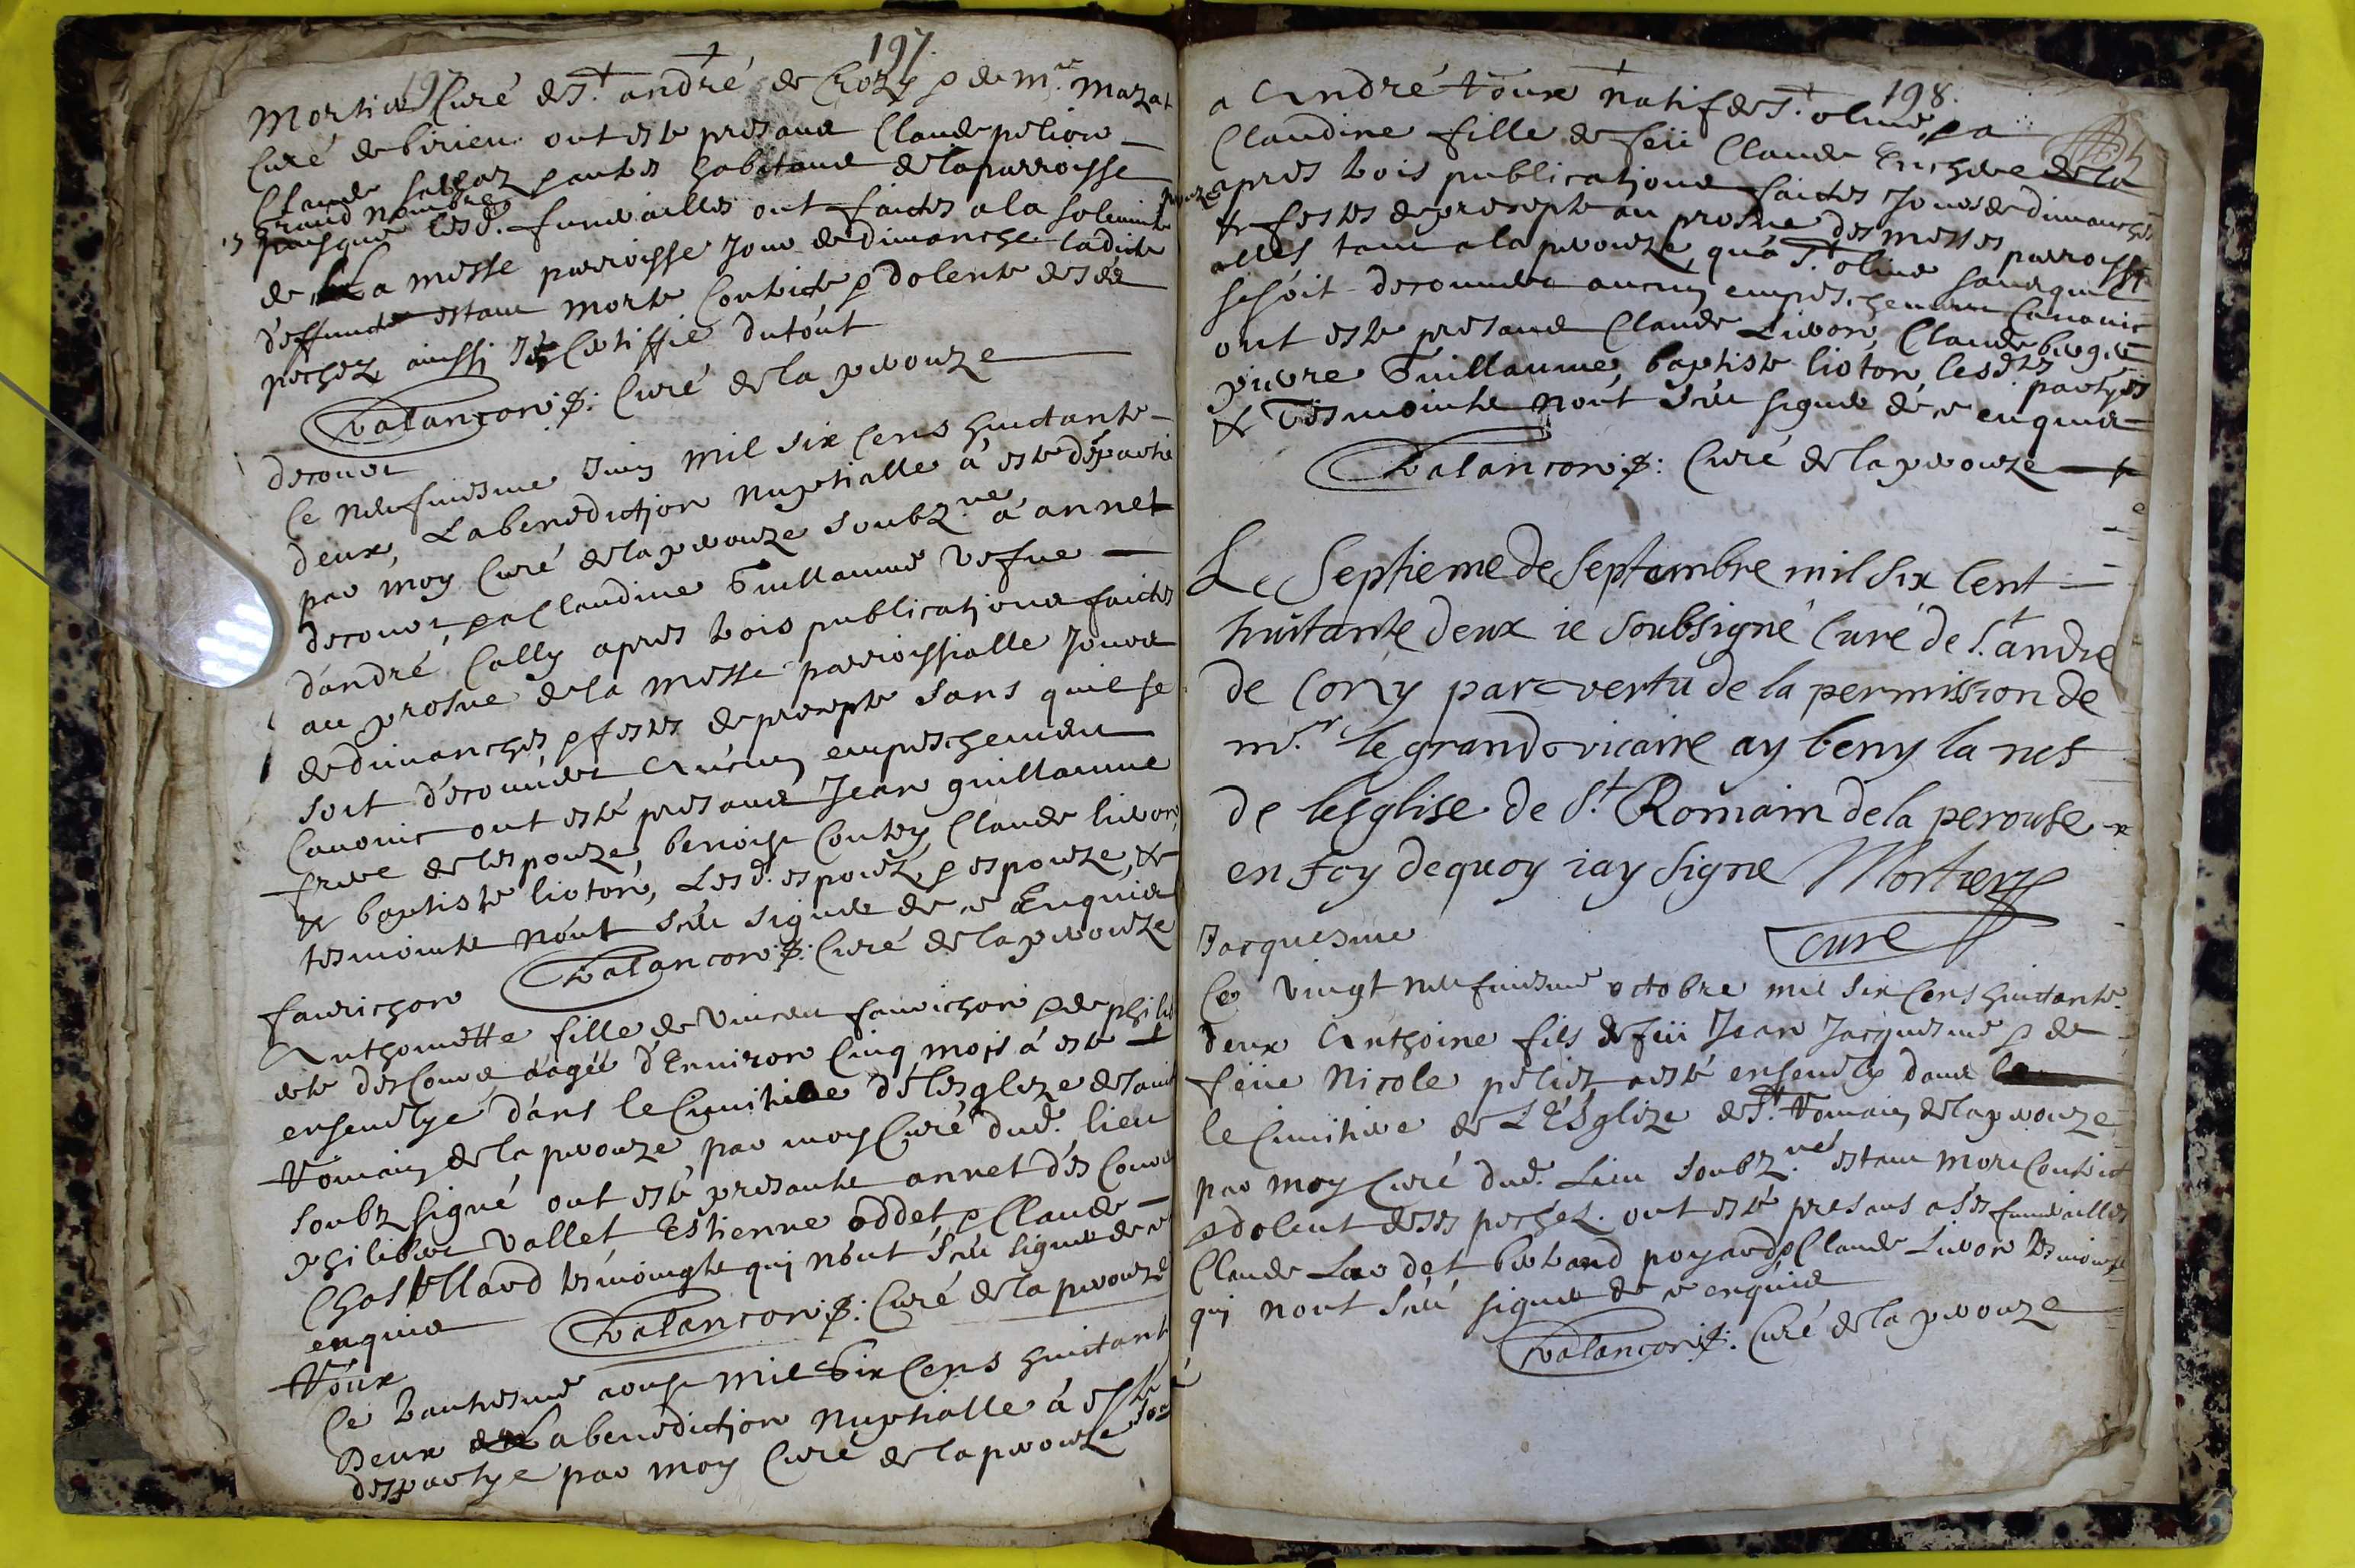 197
Mortier Curé de St. andré de Corzy & de mre. Mazat
Curé de birieu ont esté presans Claude pelion
Claude & autres habitans de la parroisse
grand nombre
puisque lesd. funerailles ont faictes a la solemnité
de la messe parroisse Jour de dimanche ladicte
deffuncte estant morte Contricte & dolente de ses
pechez, ainssi Je Certiffie du tout
Valancon p: Curé de la perouze
decouur
Ce neufuiesme Juin mil six cens huictante
deux, La benediction nuptialle a esté départie
par moy Curé de la perouze soubzné a annet
decouur, & a Claudine Guillaume vefue
d'andré Cally apres trois publications faictes
au prosne de la messe parroissialle Jours
de dimanches & festes de precepte sans qu'il se
soit découuert aucun empeschement
Canonic ont esté presans Jean guillaume
frere de lespouze, benoist Contry, Claude liuron
& baptiste lioton, Lesd. espoux & espouze, &
tesmointz n'ont sceu signer de ce Enquis
Valancon p: Curé de la perouze
faurichon
Anthoinette fille de Vincen faurichon & de phili
berte descours, aagée d'Enuiron Cinq mois a esté
enseuelye dans le Cimitiere de lesglize de saint
Romain de la perouze par moy Curé dud. lieu
soubzsigné ont esté presantz annet des Cours
philibert Vallet Estienne oddet & Claude
Chastellard tesmoingtz qui n'ont sceu signer de ce
enquis Valancon p: Curé de la perouze
Roux
Ce trantiesme aoust mil Six Cens huictante
Deux La benediction nuptialle a esté
despartye par moy Curé de la perouze
198.
a André Roux natif de St. oliue, & a
Claudine fille de feu Claude de la
perouze apres trois publications faictes Jours de dimanches
& festes de precepte au prosne des messes parroissi
alles tant a la perouze, qu'a St. oliue sans quil
se soit decouuert aucun empeschement Canonic
ont esté presans Claude Liuron, Claude
piere Guillaume, baptiste lioton, lesdtes partyes
& Tesmointz n'ont sceu signer de ce enquis
Valancon p: Curé de la perouze
Le Septieme de Septambre mil six Cent
huitante deux ie Soubsigné Curé de St. andre
de Corzy par vertu de la permission de
mr. le grand vicaire ay beny la nef
de lesglise de St. Romain de la perouse
en foy dequoy iay signe Mortier
Curé
Jacquesme
Ce vingt neufuiesme octobre mil six Cens huictante
deux Anthoine fils de feu Jean Jacquesme & de
feue Nicole peliet a esté enseuely dans
le Cimitiere de L'Esglize de St. Romain de la perouze
par moy Curé dud. Lieu soubzné estant mort Contrict
& dolent de ses pechez. ont esté presans a ses funerailles
Claude Lardet bertrand poyard & Claude Liuron tesmoins
qui n'ont sceu signer de ce enquis
Valancon p: Curé de la perouze